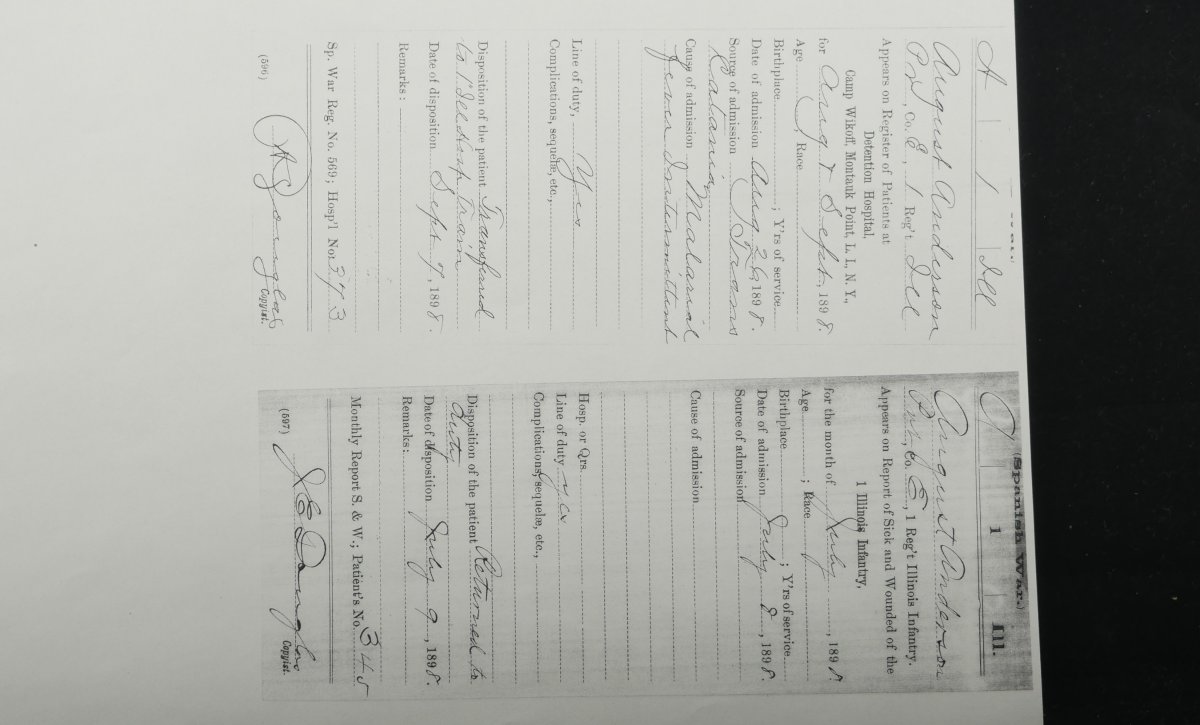 A | 1 | Ill
August Anderson
Pvt, Co. E, 1 Reg't Ill
Appears on Register of Patients at
Detention Hospital,
Camp Wikoff, Montauk Point, L. I., N. Y.,
for Aug & Sept, 1898.
Age , Race
Birthplace ; Y'rs of service
Date of admission Aug 26 1898.
Source of admission Trans
Catania
Cause of admission Malarial
fever Intermittent
Line of duty, Yes
Complications, sequelæ, etc.,
Disposition of the patient Transferred
to 1" Ill Hosp. Train
Date of disposition Sept. 7, 1898.
Remarks:
Sp. War Reg. No. 569; Hosp'l No. 373
Douglas
(596) Copyist.
(Spanish War.)
A | 1 | Ill.
August Anderson
Pvt, Co. E, 1 Reg't Illinois Infantry.
Appears on Report of Sick and Wounded of the
1 Illinois Infantry,
for the month of July, 1898.
Age ; Race
Birthplace ; Y'rs of service
Date of admission July 8, 1898.
Source of admission
Cause of admission
Hosp. or Qrs.
Line of duty yes
Complications, sequelæ, etc.,
Disposition of the patient Returned to
duty
Date of disposition July 9, 1898.
Remarks:
Monthly Report S. & W.; Patient's No. 345
Douglas
(597) Copyist.